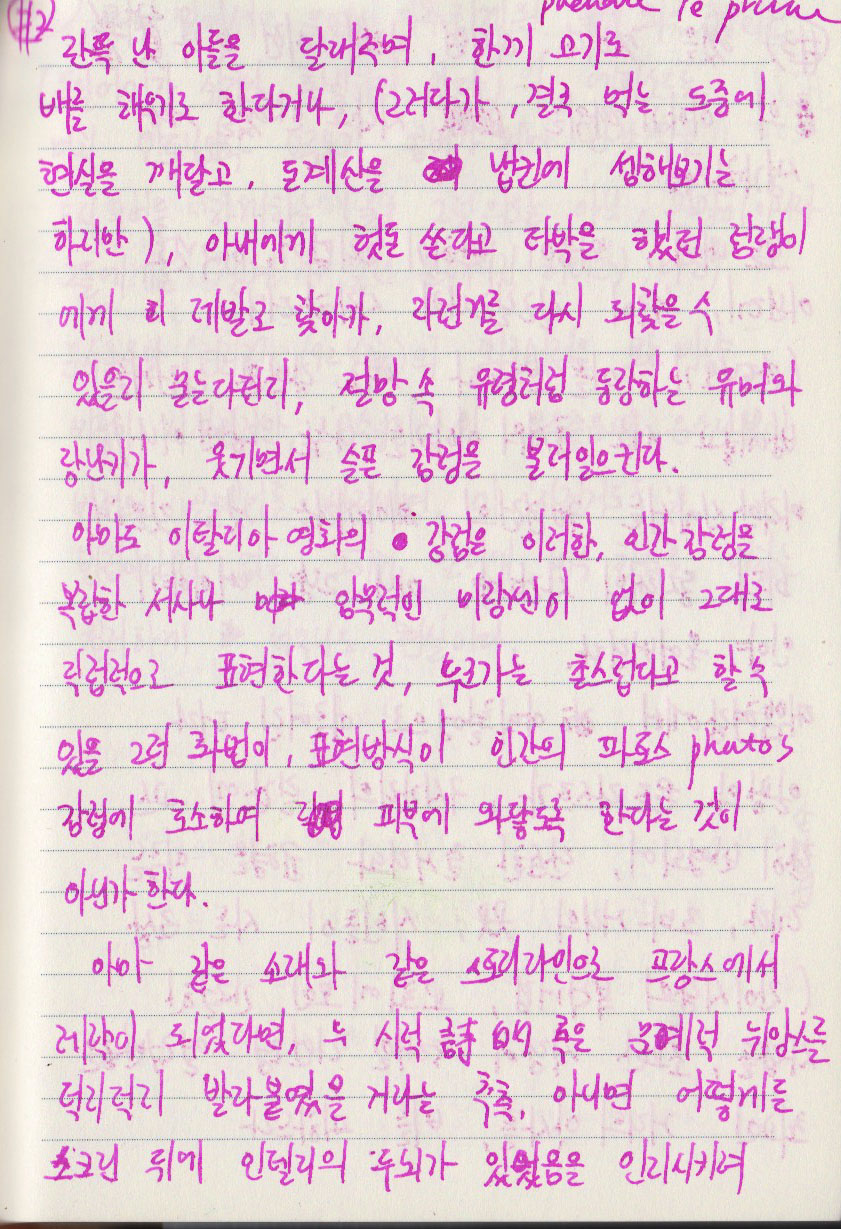 #2
잔뜩 난 아들을 달래주며, 한끼 고기로
배를 채우기로 한다거나, (그러다가, 결국 먹는 도중에
현실을 깨닫고, 돈계산을 냅킨에 셈해보기는
하지만), 아내에게 헛돈 쓴다고 타박을 했던 점쟁이
에게 제발로 찾아가, 자전거를 다시 되찾을 수
있을지 묻는다던지, 절망 속 유령처럼 등장하는 유머와
장난끼가, 웃기면서 슬픈 감정을 불러일으킨다.
아마도 이탈리아 영화의 강점은 이러한, 인간 감정을
복잡한 서사나 암묵적인 미장센이 없이 그대로
직접적으로 표현한다는 것, 누군가는 촌스럽다고 할 수
있을 그런 화법이, 표현방식이 인간의 파토스 phatos
감정에 호소하며 피부에 와닿도록 한다는 것이
아닌가 한다.
아마 같은 소재와 같은 스토리라인으로 프랑스에서
제작이 되었다면, 누 시적 혹은 문예적 뉘앙스를
덕지덕지 발라붙였을 거라는 추측, 아니면 어떻게든
스크린 뒤에 인텔리의 두뇌가 있었음을 인지시키려